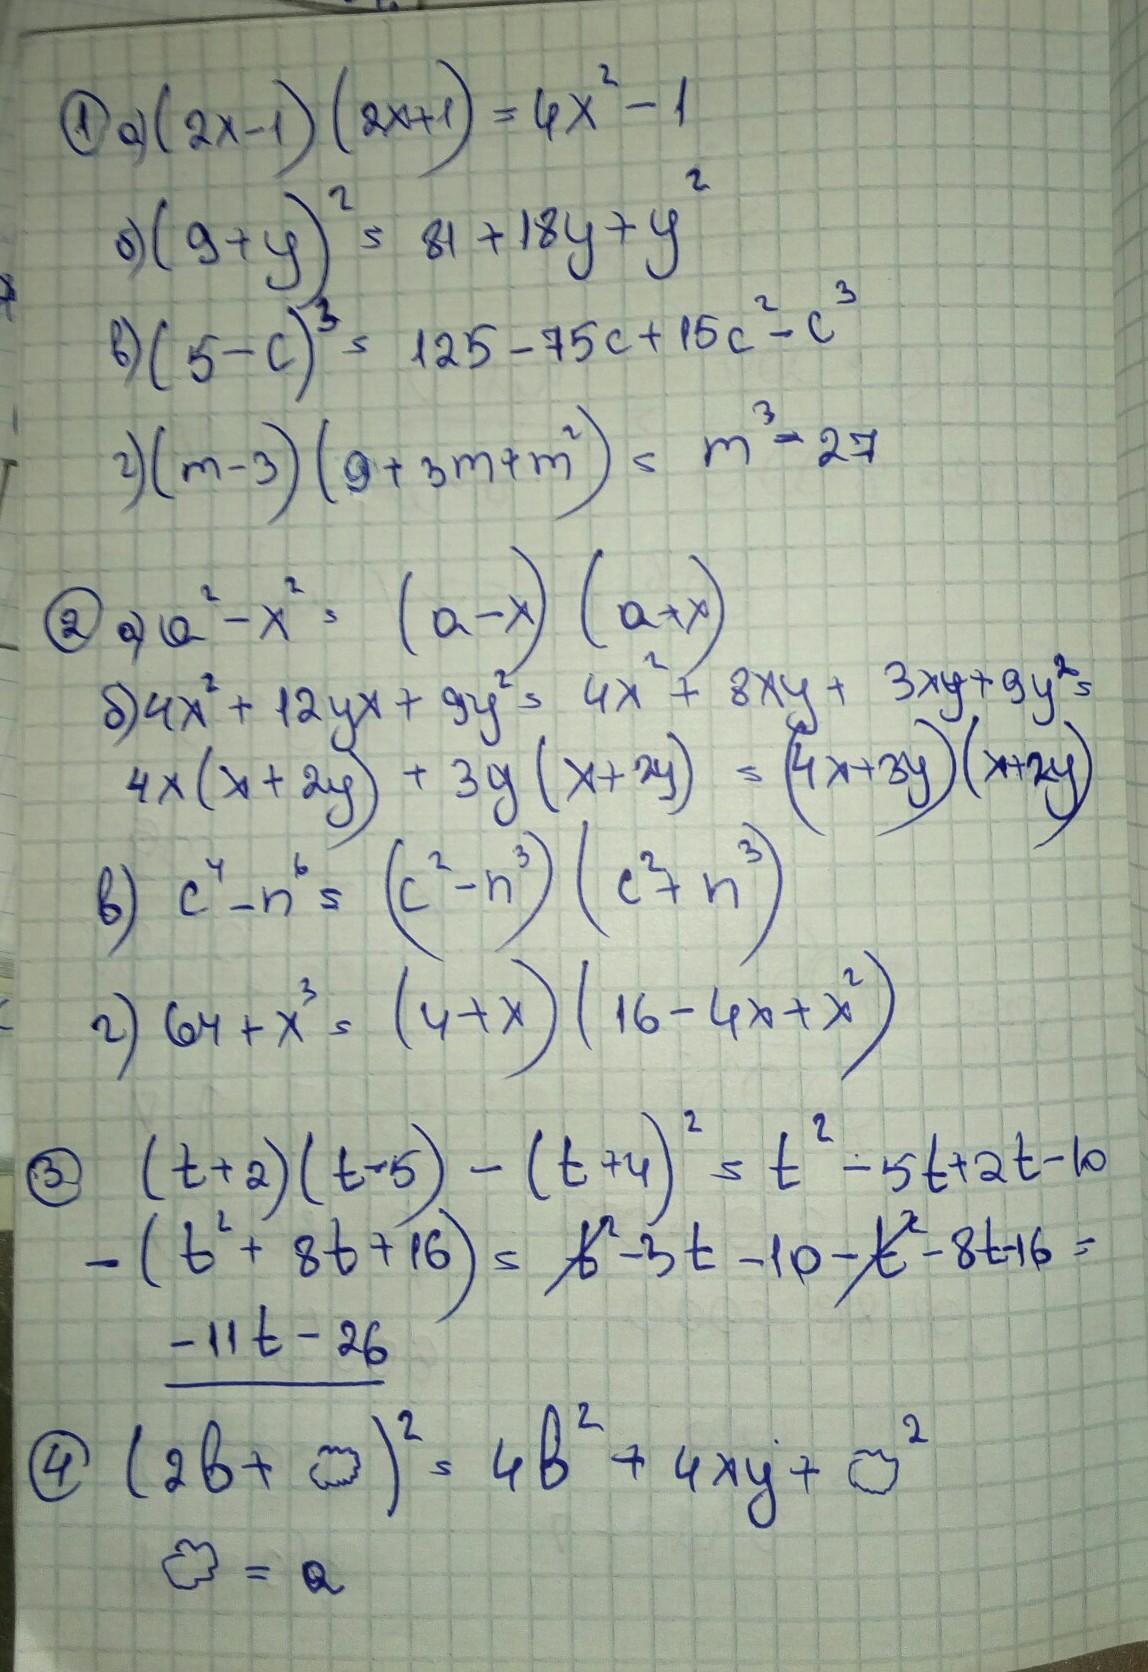 ① а) (2x-1)(2x+1) = 4x² - 1
б) (9+y)² = 81 + 18y + y²
в) (5-c)³ = 125 - 75c + 15c² - c³
г) (m-3)(9+3m+m²) = m³ - 27
② а) a² - x² = (a-x)(a+x)
б) 4x² + 12yx + 9y² = 4x² + 8xy + 3xy + 9y² =
4x(x+2y) + 3y(x+2y) = (4x+3y)(x+2y)
в) c⁴ - n⁶ = (c² - n³)(c² + n³)
г) 64 + x³ = (4+x)(16-4x+x²)
③ (t+2)(t-5) - (t+4)² = t² - 5t + 2t - 10
- (t² + 8t + 16) = t² - 3t - 10 - t² - 8t - 16 =
-11t - 26
④ (2b + )² = 4b² + 4xy + ²
= a